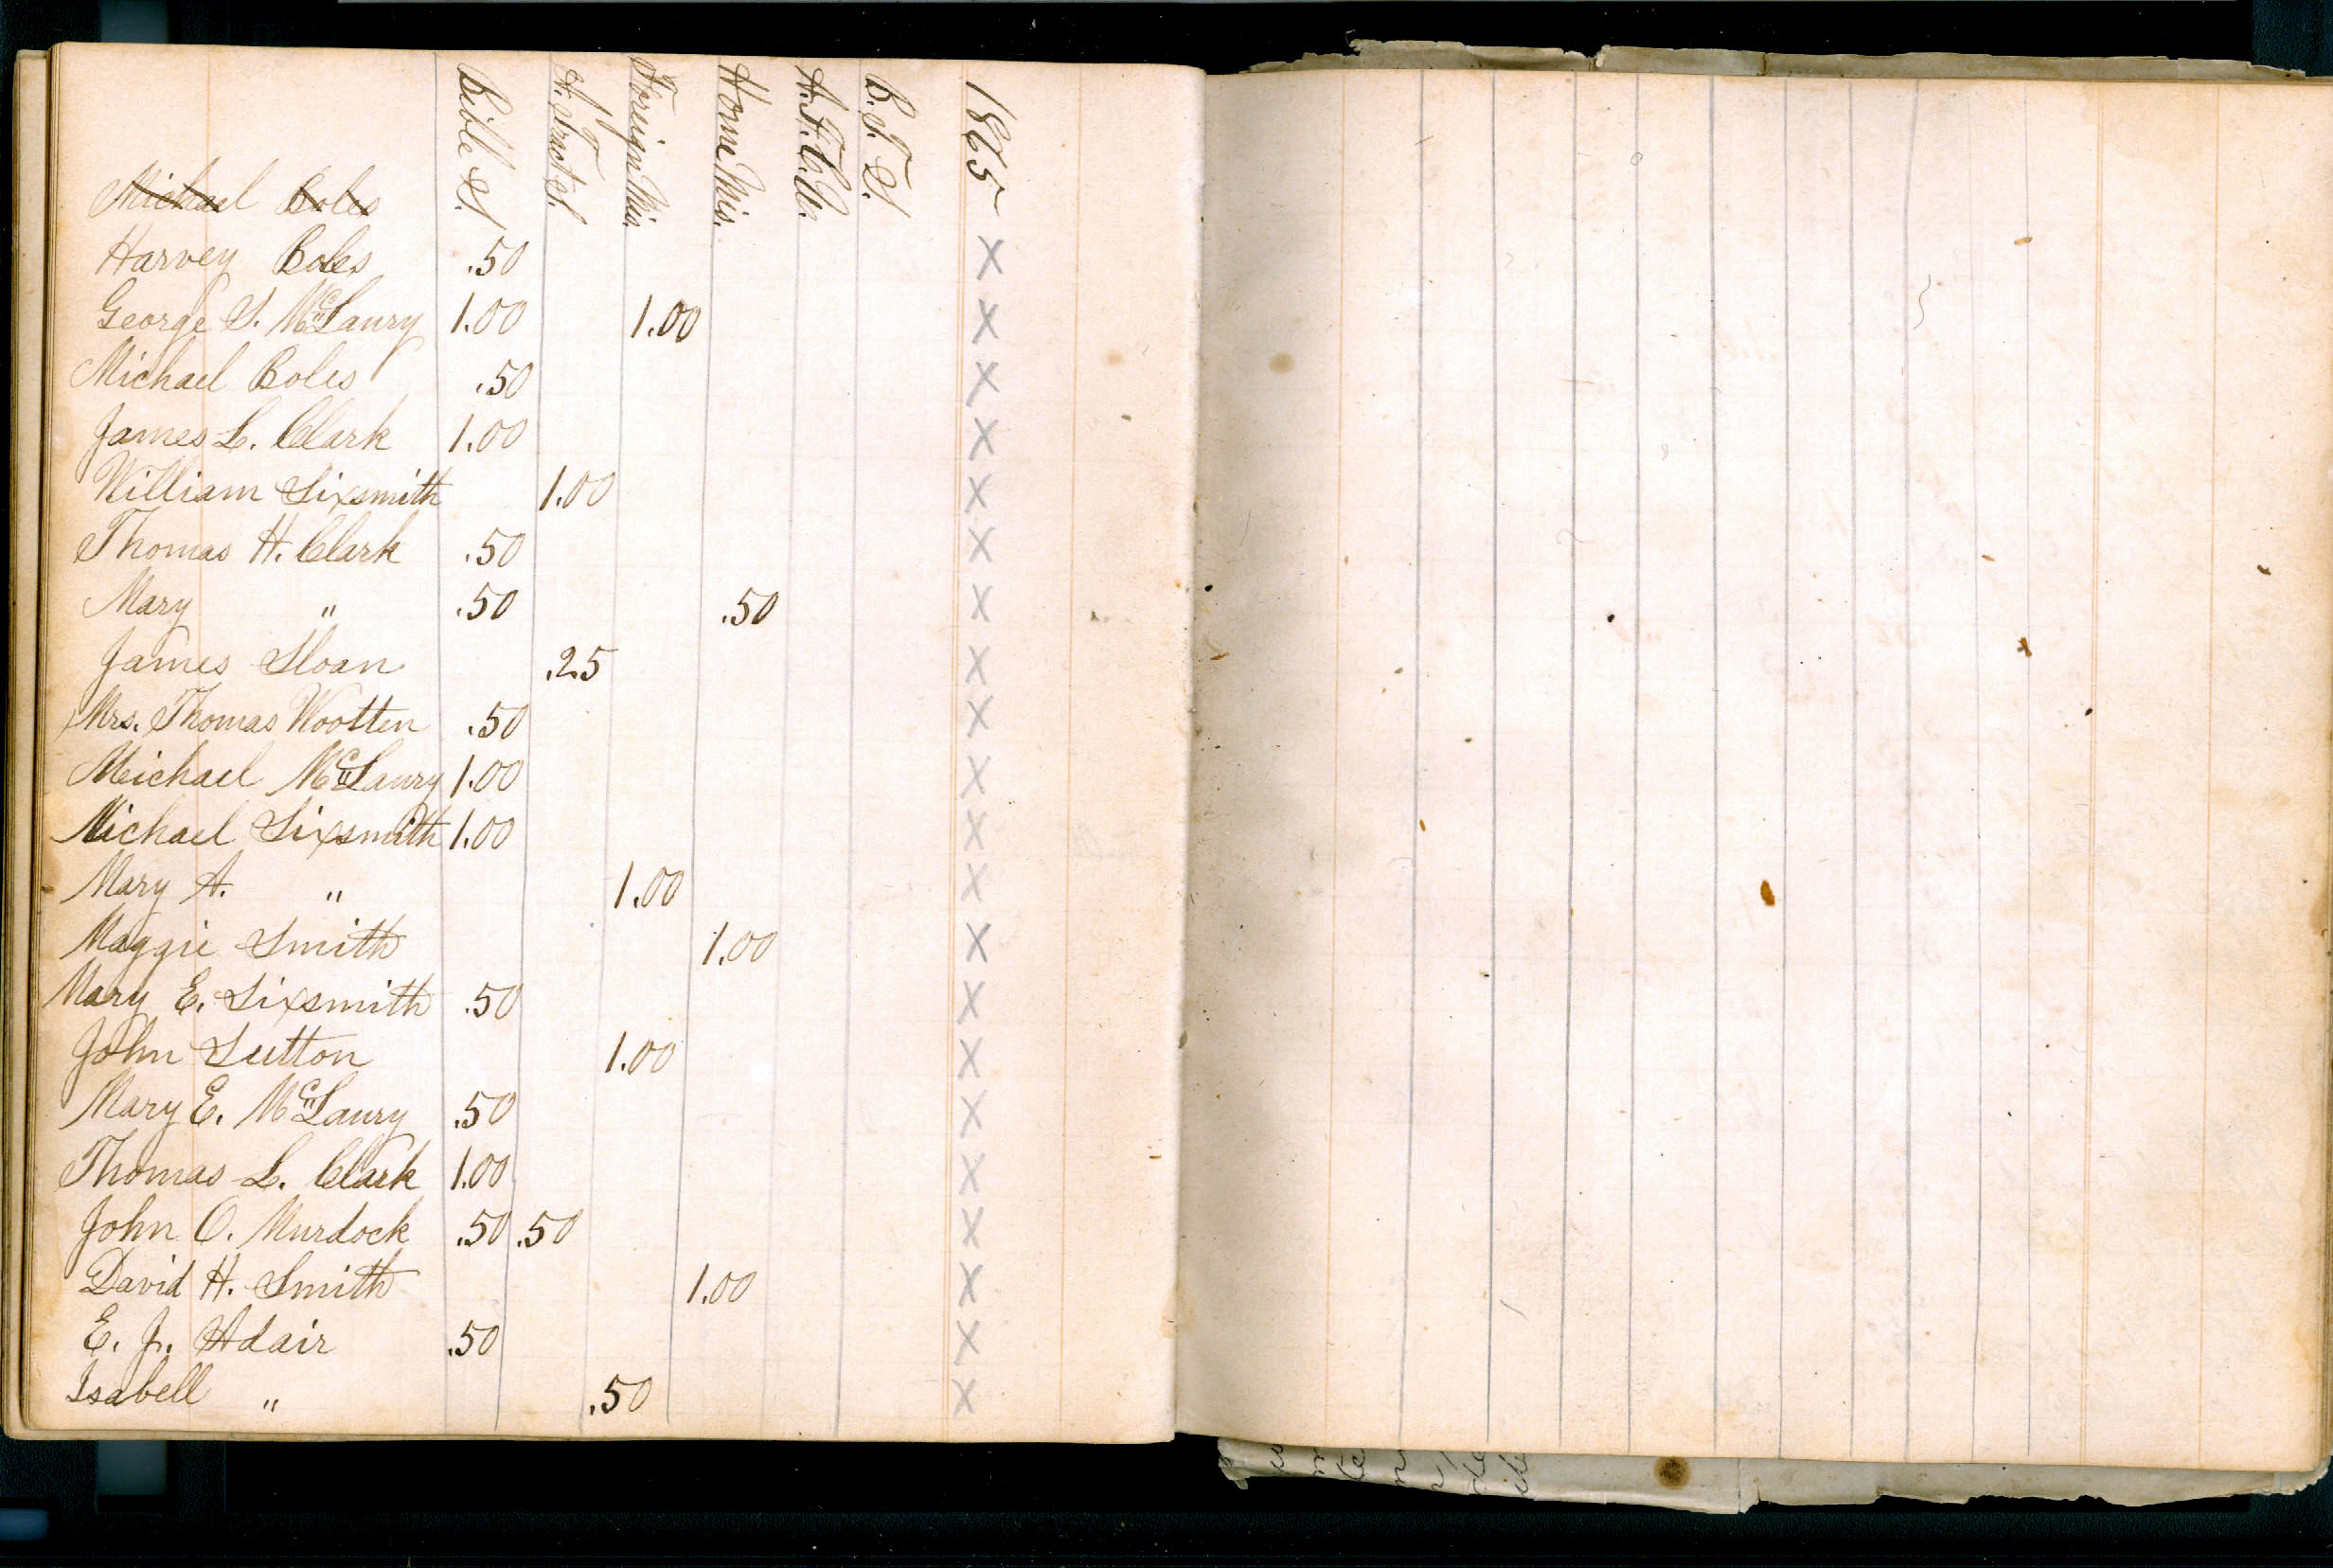 Bible S. A. Tract S. Foreign Mis. Home Mis. A. F. C. U. B. T. S. 1865
Michael Boles
Harvey Boles .50 X
George S. McLaury 1.00 1.00 X
Michael Boles .50 X
James L. Clark 1.00 X
William Sixsmith 1.00 X
Thomas H. Clark .50 X
Mary " .50 .50 X
James Sloan .25 X
Mrs. Thomas Wootten .50 X
Michael McLaury 1.00 X
Michael Sixsmith 1.00 X
Mary A. " 1.00 X
Maggie Smith 1.00 X
Mary E. Sixsmith .50 X
John Sutton 1.00 X
Mary E. McLaury .50 X
Thomas L. Clark 1.00 X
John O. Murdock .50 .50 X
David H. Smith 1.00 X
E. J. Adair .50 X
Isabell " .50 X